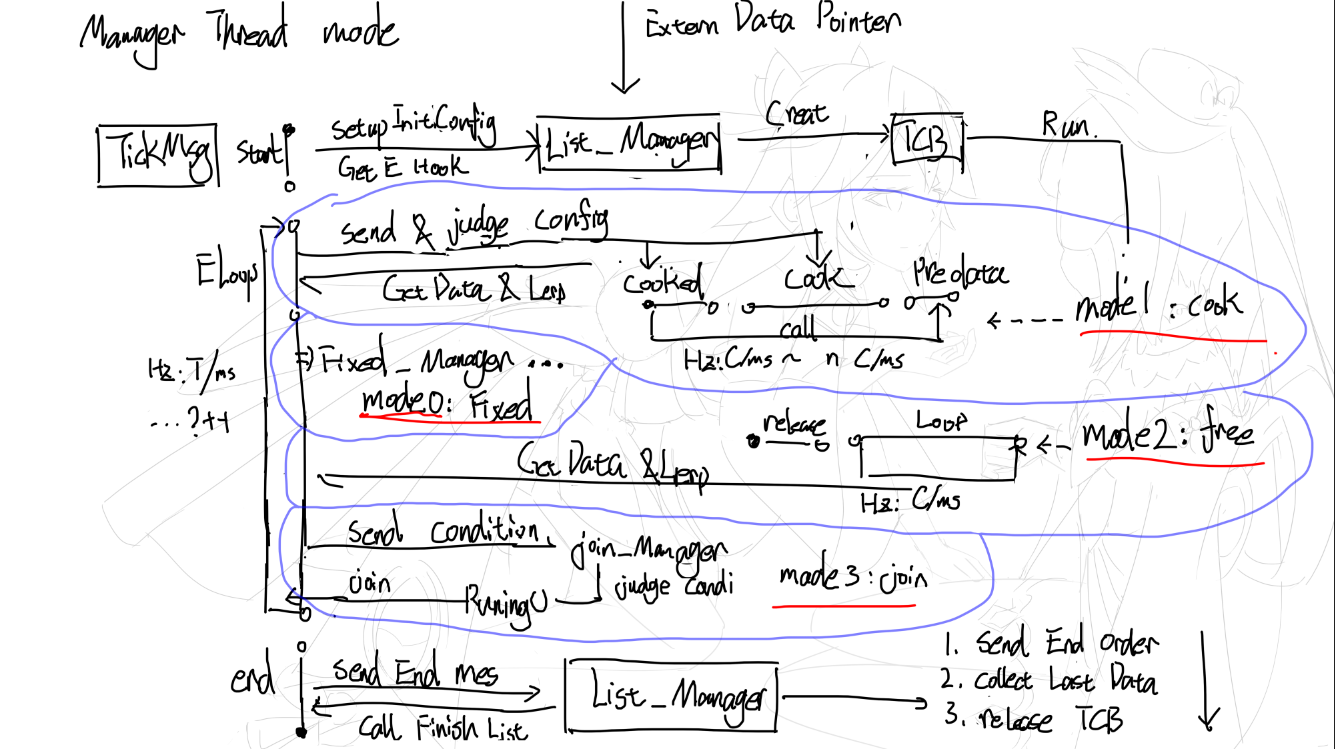 Manager Thread mode
Extern Data Pointer
TickMsg
Start
setup Init.Config
Get E Hook
List_Manager
Creat
TCB
Run.
ELoop
Send & judge config
Get Data & Lerp
Cooked
Cook
Pre data
call
Hz:C/ms ~ n C/ms
mode1 : cook
Hz:T/ms
...?++
=) Fixed_Manager ...
mode0: Fixed
release
Loop
Hz: C/ms
mode2: free
Get Data & Lerp
Send condition.
join_Manager
judge condi
join
Runing()
mode3: join
end
Send End Mes
Call Finish List
List_Manager
1. Send End order
2. Collect Last Data
3. release TCB